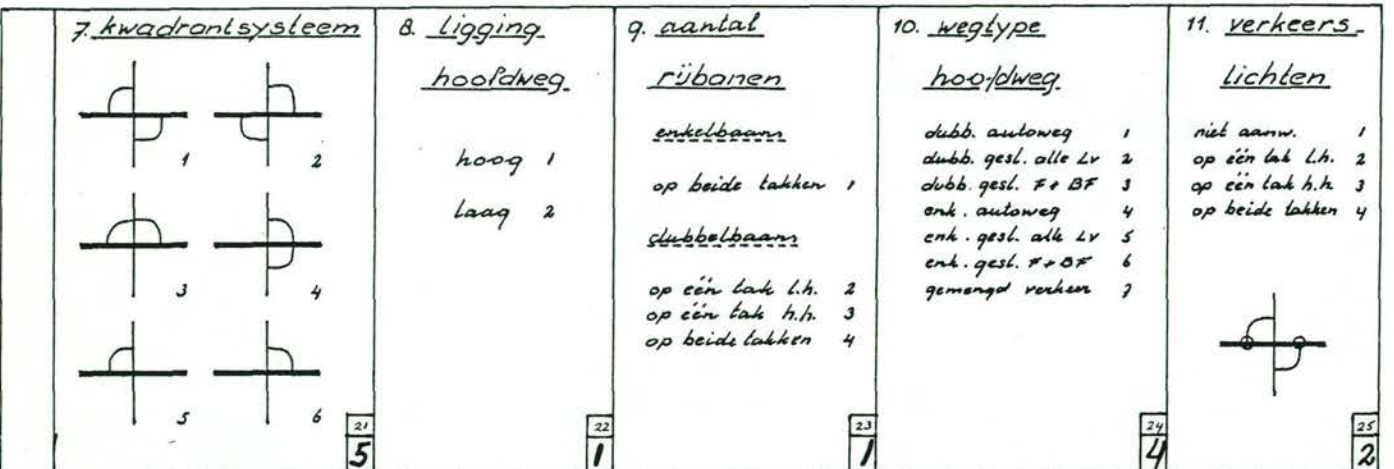 7. kwadrantsysteem
1
2
3
4
5
6
21
5
8. ligging
hoofdweg
hoog 1
laag 2
22
1
9. aantal
rijbanen
enkelbaans
op beide takken 1
dubbelbaans
op één tak l.h. 2
op één tak h.h. 3
op beide takken 4
23
1
10. wegtype
hoofdweg
dubb. autoweg 1
dubb. gesl. alle Lv 2
dubb. gesl. F+BF 3
enk. autoweg 4
enk. gesl. alle Lv 5
enk. gesl. F+BF 6
gemengd verkeer 7
24
4
11. verkeers-
lichten
niet aanw. 1
op één tak l.h. 2
op één tak h.h. 3
op beide takken 4
25
2